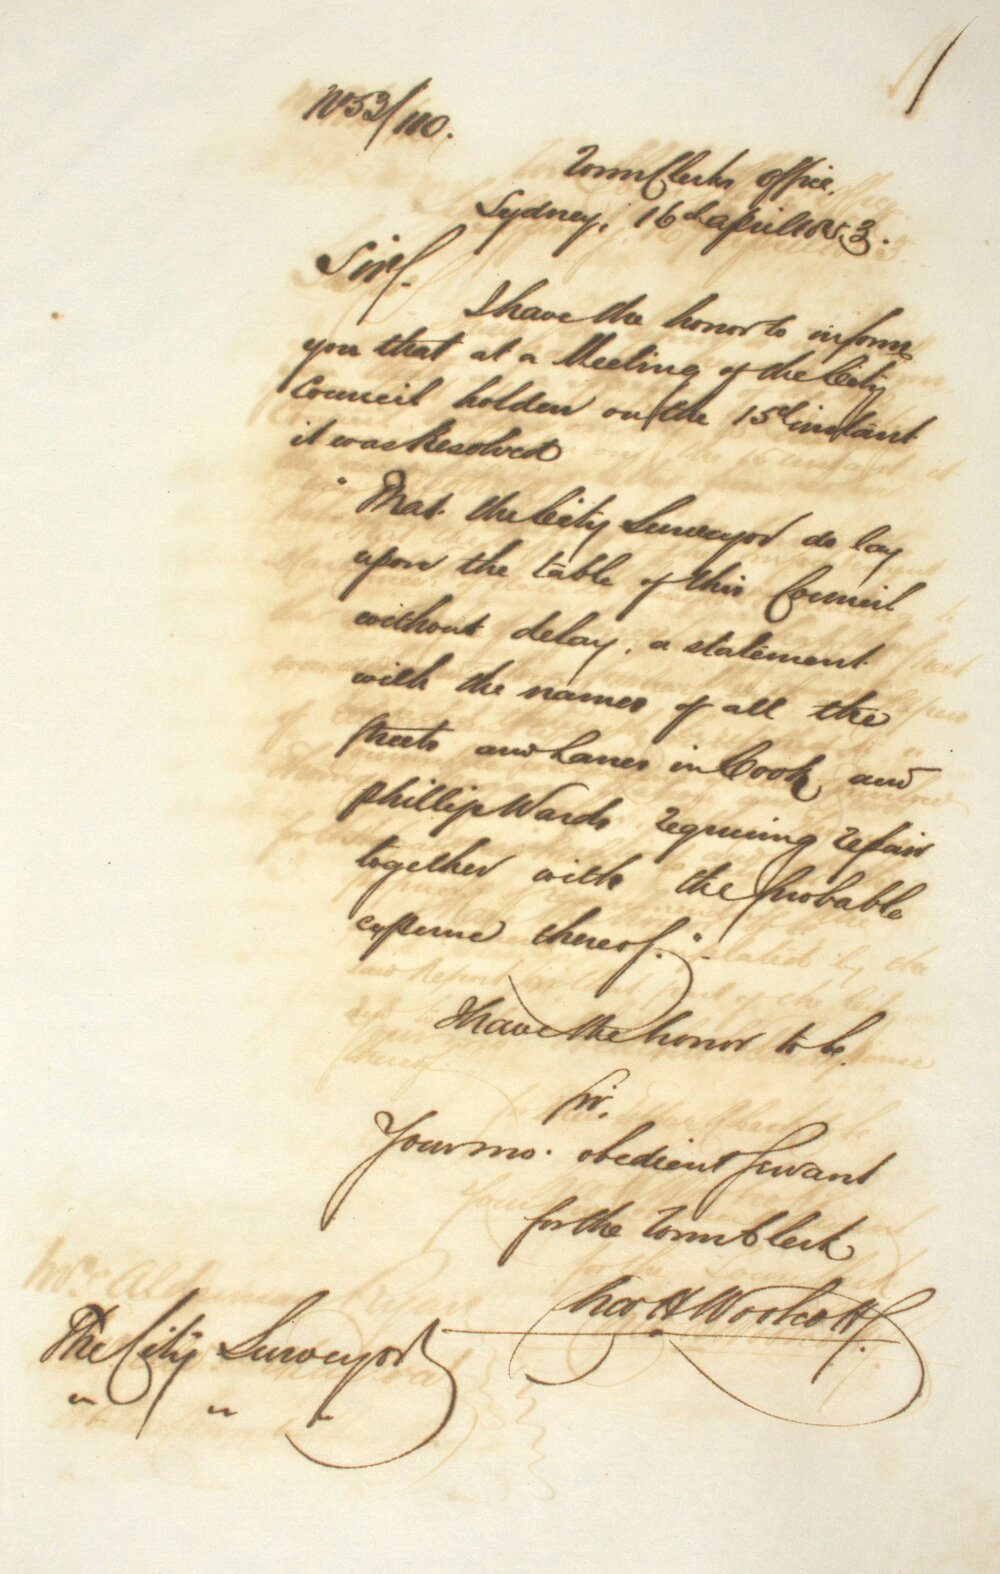 1
No 53/110.
Town Clerks office.
Sydney, 16th april 1853.
Sir/.
I have the honor to inform
you that at a Meeting of the City
Council holden on the 15th instant
it was Resolved
" That the City Surveyor do lay
upon the table of this Council
without delay, a statement
with the names of all the
streets and Lanes in Cook and
Phillip Wards requiring repair
together with the probable
expense thereof.".
I have the honor to be.
Sir.
Your mo. obedient Servant
for the Town Clerk
Chas H Woolcott/.
The City Surveyor
" " "